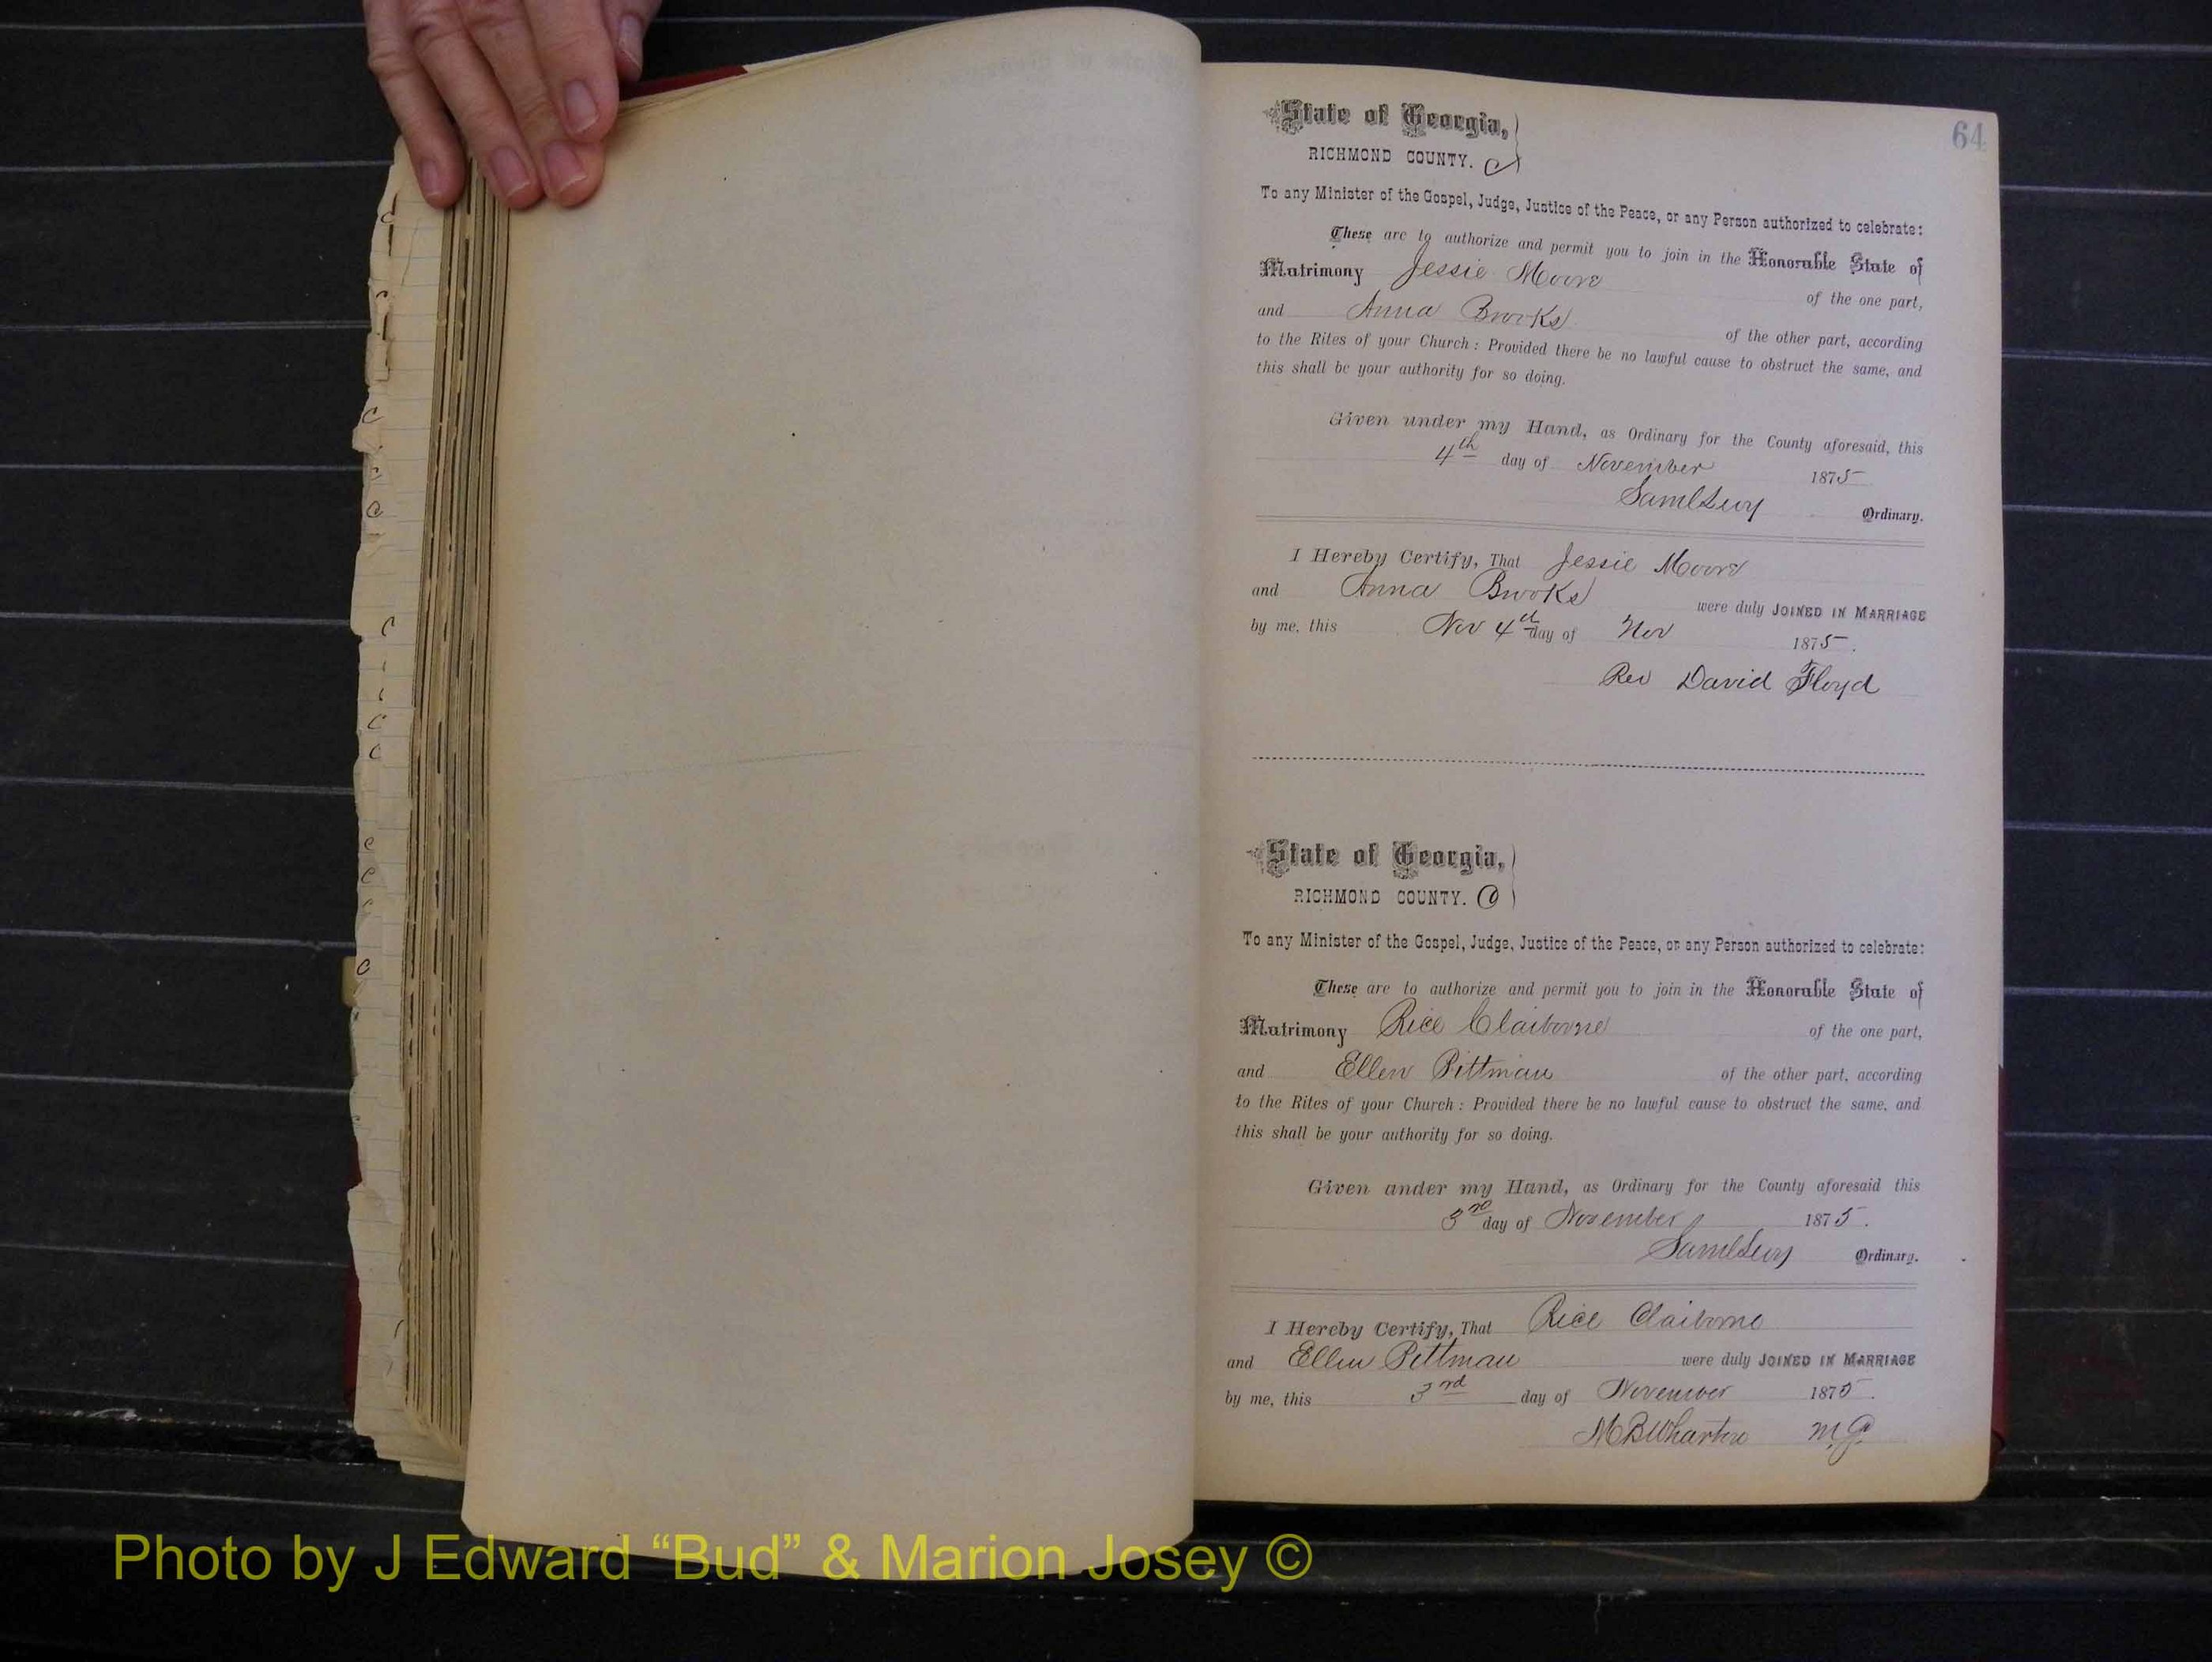 64
State of Georgia,
RICHMOND COUNTY. C
To any Minister of the Gospel, Judge, Justice of the Peace, or any Person authorized to celebrate:
These are to authorize and permit you to join in the Honorable State of
Matrimony Jessie Moore of the one part,
and Anna Brooks of the other part, according
to the Rites of your Church: Provided there be no lawful cause to obstruct the same, and
this shall be your authority for so doing.
Given under my Hand, as Ordinary for the County aforesaid, this
4th day of November 1875
Saml Levy Ordinary.
I Hereby Certify, That Jessie Moore
and Anna Brooks were duly JOINED IN MARRIAGE
by me, this Nov 4th day of Nov 1875.
Rev David Floyd
State of Georgia,
RICHMOND COUNTY. C
To any Minister of the Gospel, Judge, Justice of the Peace, or any Person authorized to celebrate:
These are to authorize and permit you to join in the Honorable State of
Matrimony Rice Claiborne of the one part,
and Ellen Pittman of the other part, according
to the Rites of your Church: Provided there be no lawful cause to obstruct the same, and
this shall be your authority for so doing.
Given under my Hand, as Ordinary for the County aforesaid this
3rd day of November 1875.
Saml Levy Ordinary.
I Hereby Certify, That Rice Claiborne
and Ellen Pittman were duly JOINED IN MARRIAGE
by me, this 3rd day of November 1875.
M B Wharton M.G.
Photo by J Edward “Bud” & Marion Josey ©